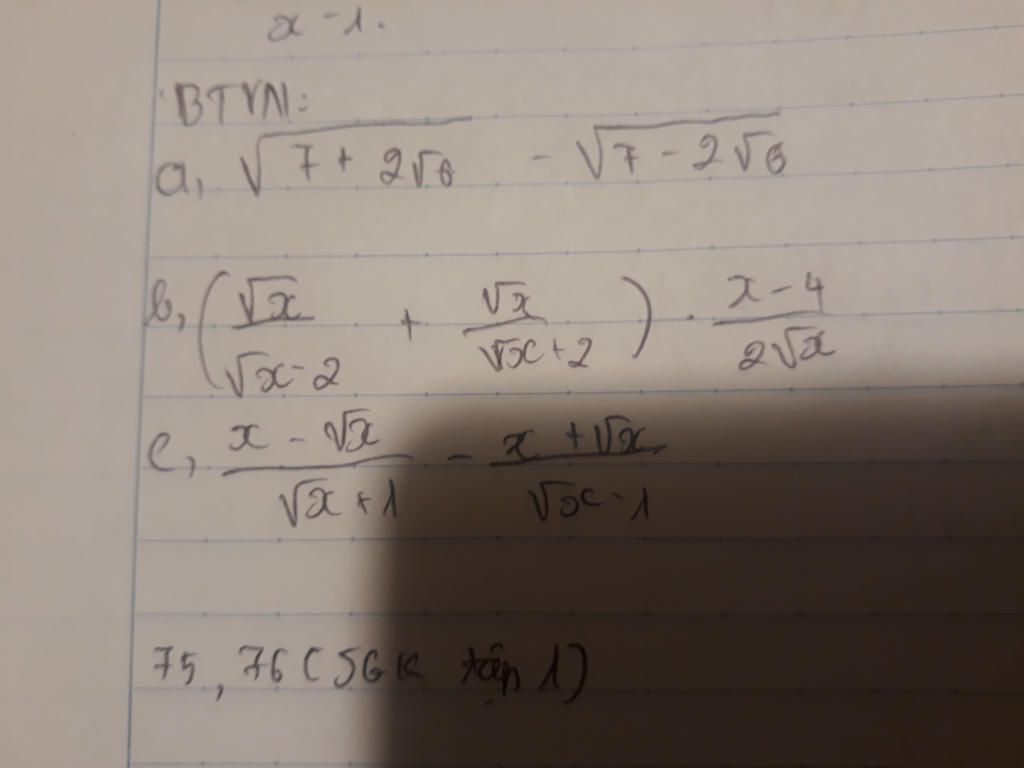 x - 1.
BTVN:
a, √(7 + 2√6) - √(7 - 2√6)
b, (√x/(√x - 2) + √x/(√x + 2)) · (x - 4)/(2√x)
c, (x - √x)/(√x + 1) - (x + √x)/(√x - 1)
75, 76 (SGK tập 1)